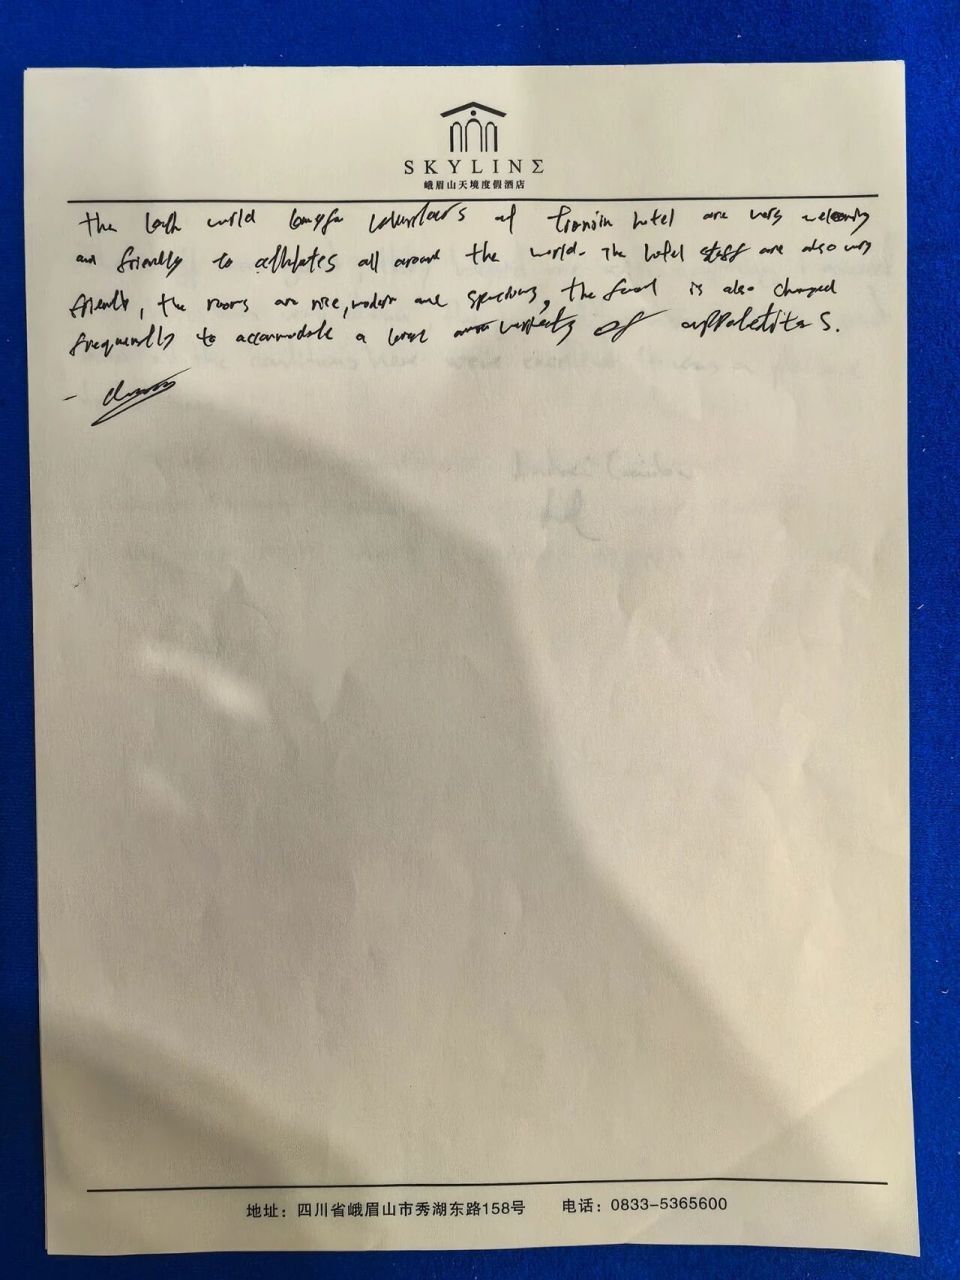 SKYLINΣ
峨眉山天境度假酒店
the world volunteers at hotel are very welcoming
and friendly to athletes all around the world. The hotel staff are also very
friendly, the rooms are nice, modern and spacious, the food is also changed
frequently to accommodate a of
地址：四川省峨眉山市秀湖东路158号 电话：0833-5365600